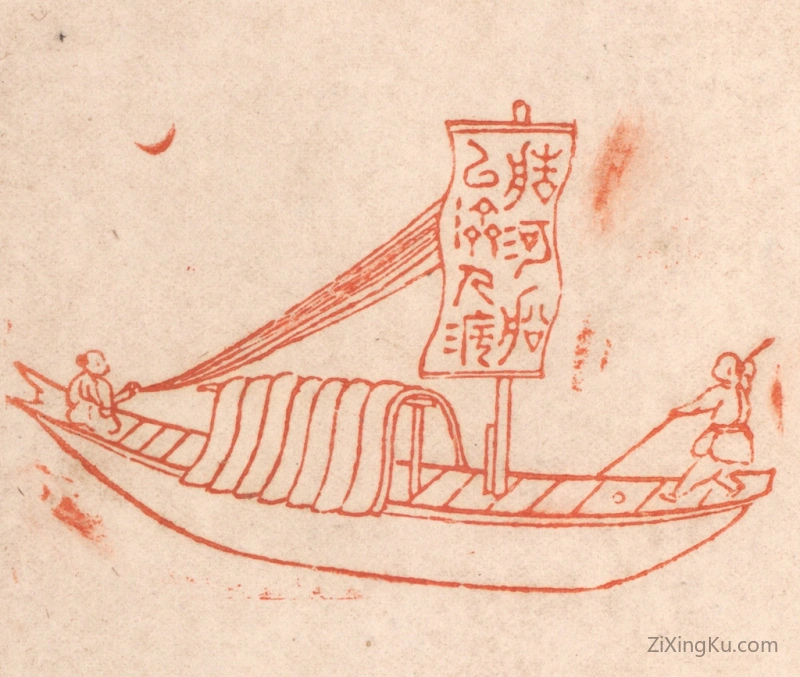 艁河船
以濟人渡
ZiXingKu.com